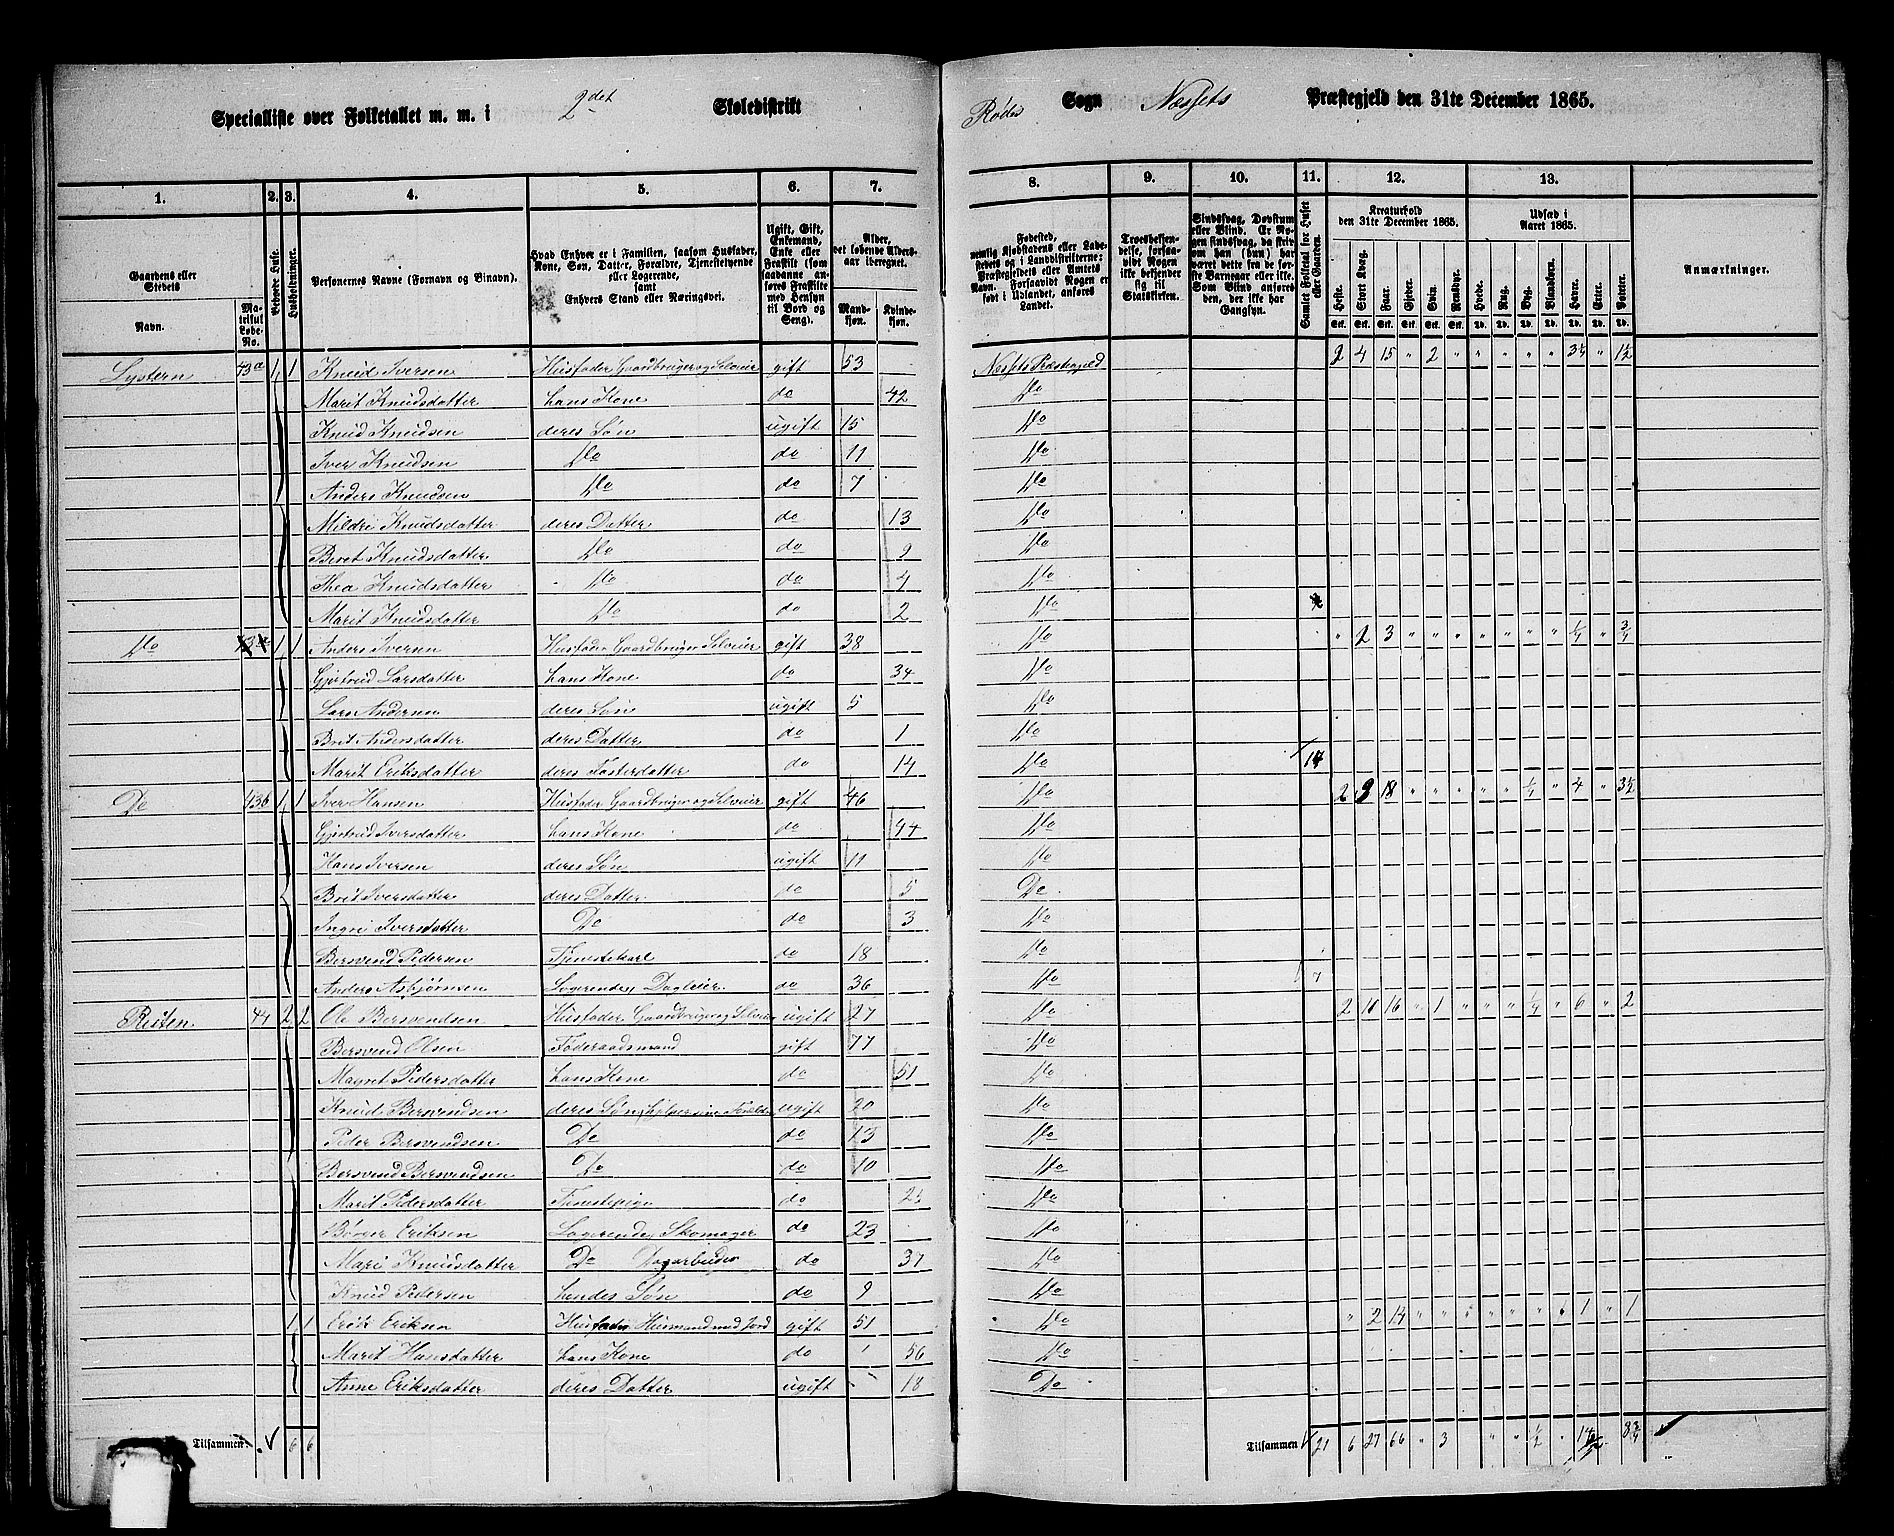 Specialliste over Folketallet m. m. i 2det Skoledistrikt Rødø Sogn Nessets Præstegjeld den 31te December 1865.
1. 2. 3. 4. 5. 6. 7. 8. 9. 10. 11. 12. 13.
Gaardens eller Stedets
Navn.
Matrikul Løbe-No.
Beboede Huse.
Husholdninger.
Personernes Navne (Fornavn og Binavn).
Hvad Enhver er i Familien, saasom Husfader, Kone, Søn, Datter, Forældre, Tjenestetyende eller Logerende, samt Enhvers Stand eller Næringsvei.
Ugift, Gift, Enkemand, Enke eller Fraskilt (som saadanne anføres Fraskilte med Hensyn til Bord og Seng).
Alder, det løbende Aldersaar iberegnet.
Mandkjøn. Kvindekjøn.
Fødested, nemlig Kjøbstadens eller Ladestedets og i Landdistrikterne: Præstegjeldets eller Amtets Navn. Forsaavidt Nogen er født i Udlandet, anføres Landet.
Troesbekjendelse, forsaavidt Nogen ikke bekjender sig til Statskirken.
Sindssvag, Døvstum eller Blind. Er Nogen sindssvag, da skrives om han (hun) har været dette fra de første Barneaar eller ikke. Som Blind anføres den, der ikke har Gangsyn.
Samlet Folketal for Huset eller Gaarden.
Kreaturhold den 31te December 1865.
Heste. Stort Kvæg. Faar. Gjeder. Svin. Rensdyr.
Udsæd i Aaret 1865.
Hvede. Rug. Byg. Blandkorn. Havre. Erter. Poteter.
Anmærkninger.
Lystern 43a 1 1 Knud Iversen Husfader Gaardbruger og Selveier gift 53 Nessets Præstegjeld 2 4 15 " 2 " " " " " 3¼ " 1½
Marit Knudsdatter hans Kone do 42 do
Knud Knudsen deres Søn ugift 15 do
Iver Knudsen do do 11 do
Anders Knudsen do do 7 do
Mildri Knudsdatter deres Datter do 13 do
Beret Knudsdatter do do 9 do
Thea Knudsdatter do do 4 do
Marit Knudsdatter do do 2 do
do 1 1 Anders Iversen Husfader Gaardbruger Selveier gift 38 do " 2 3 " " " " " " " ¼ " ¾
Gjertrud Larsdatter hans Kone do 34 do
Lars Andersen deres Søn ugift 5 do
Brit Andersdatter deres Datter do 1 do
Marit Eriksdatter deres Fosterdatter do 14 do 14
Do 43b 1 1 Iver Hansen Husfader Gaardbruger og Selveier gift 46 do 2 9 18 " " " " " ¼ " 4 " 3½
Gjertrud Iversdatter hans Kone do 44 do
Hans Iversen deres Søn ugift 11 do
Brit Iversdatter deres Datter do 5 Do
Ingri Iversdatter Do do 3 do
Bersvend Pedersen Tjenestekarl do 18 do
Anders Asbjørnsen Logerende, Dagleier do 36 do 7
Reiten 44 2 2 Ole Bersvendsen Husfader Gaardbruger og Selveier ugift 27 do 2 10 16 " 1 " " " ¼ " 6 " 2
Bersvend Olsen Føderaadsmand gift 77 do
Magret Pedersdatter hans Kone do 51 do
Knud Bersvendsen deres Søn, hjelper sine Forældre ugift 20 do
Peder Bersvendsen Do do 13 do
Bersvend Bersvendsen Do do 10 do
Marit Pedersdatter Tjenestepige do do
Børver Eriksen Logerende Skomager do 23 do
Mari Knudsdatter Do Dagarbeider do 37 do
Knud Pedersen hendes Søn do 9 do
1 1 Erik Eriksen Husfader Husmand med Jord gift 51 do " 2 14 " " " " " " " 1 " 1
Marit Hansdatter hans Kone do 56 do
Anne Eriksdatter deres Datter ugift 18 Do
Tilsammen 6 6 Tilsammen 21 6 27 66 " 3 " " ½ " " 8¾